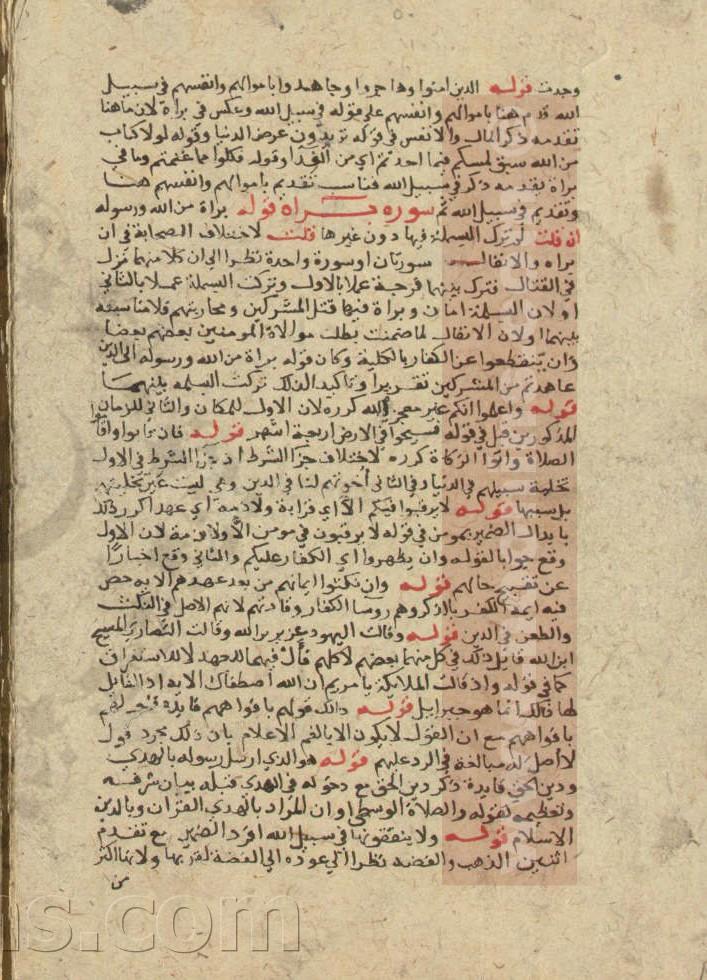 وحدت قوله الذين امنوا وهاجروا وجاهدوا باموالهم وانفسهم في سبيل
الله قدم هنا باموالهم وانفسهم على قوله في سبيل الله وعكس في براة لان ما هنا
تقدمه ذكر المال والانفس في قوله تريدون عرض الدنيا وقوله لولا كتاب
من الله سبق لمسكم فيما اخذتم اي من الفدا وقوله فكلوا مما غنمتم وما في
براة تقدمه ذكر في سبيل الله فناسب تقديم باموالهم وانفسهم هنا
وتقديم في سبيل الله ثم سورة براة قوله براة من الله ورسوله
ان قلت لم ترك البسملة فيها دون غيرها قلت لاختلاف الصحابة في ان
براه والانفال سورتان او سورة واحدة نظرا الى ان كلا منهما نزل
في القتال فترك بينهما فرجة عملا بالاول وتركت البسملة عملا بالثاني
او لان البسملة امان وبراة فيها قتل المشركين ومحاربتهم فلا مناسبة
بينهما او لان الانفال لما تضمنت طلب موالاة المومنين بعضهم بعضا
وان ينقطعوا عن الكفار بالكلية وكان قوله براة من الله ورسوله الى الذين
عاهدتم من المشركين تقريرا وتاكيدا لذلك تركت البسمله بينهما
قوله واعلموا انكم غير معجزي الله كرره لان الاول للمكان والثاني للزمان
المذكورين قبل في قوله فسيحوا في الارض اربعة اشهر قوله فان تابوا واقاموا
الصلاة واتوا الزكاة كرره لاختلاف جزا الشرط اذ جزا الشرط في الاول
تخلية سبيلهم في الدنيا وفي الثاني اخوتهم لنا في الدين وهي ليست عين تخليتهم
بل سببها قوله لا يرقبوا فيكم الا اي قرابة ولا ذمه اي عهدا كرر ذلك
بابدال الضمير بمومن في قوله لا يرقبون في مومن الا ولا ذمة لان الاول
وقع جوابا لقوله وان يظهروا اي الكفار عليكم والثاني وقع اخبارا
عن تقبيح حالهم قوله وان نكثوا ايمانهم من بعد عهدهم الايه خص
فيه ايمة الكفر بالذكر وهم روسا الكفار وقادتهم لانهم الاصل في النكث
والطعن في الدين قوله وقالت اليهود عزير بن الله وقالت النصارى المسيح
ابن الله قايل ذلك في كل منهما بعضهم لا كلهم فأل فيهما للعهد لا للاستغراق
كما في قوله واذ قالت الملايكة يا مريم ان الله اصطفاك الايه اذ القايل
لها ذلك انما هو جبرايل قوله ذلك قولهم بافواههم فايدة قوله
بافواههم مع ان القول لا يكون الا بالفم الاعلام بان ذلك مجرد قول
لا اصل له مبالغة في الرد عليهم قوله هو الذي ارسل رسوله بالهدى
ودين الحق فايدة ذكر دين الحق مع دخوله في الهدى قبله بيان شرفه
وتعظيمه لقوله والصلاة الوسطى او ان المراد بالهدى القران وبالدين
الاسلام قوله ولا ينفقونها في سبيل الله افرد الضمير مع تقدم
اثنين الذهب والفضه نظرا الى عوده الى الفضة لقربها ولانها اكثر
من
ns.com